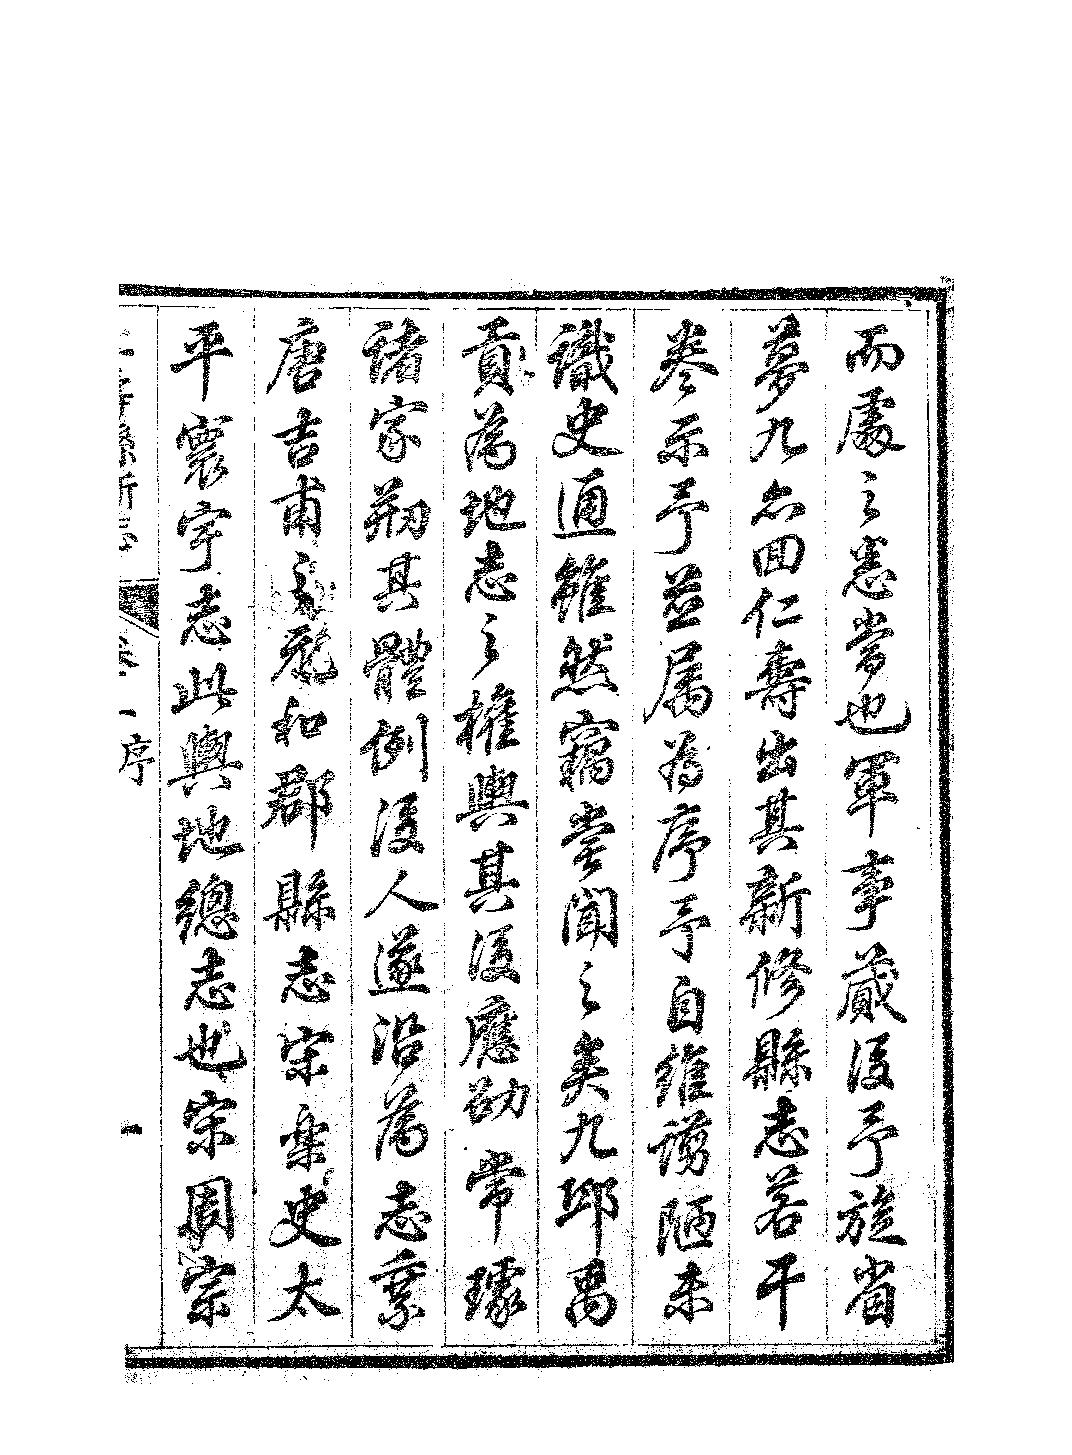 而處之悉當也軍事蕆後予旋省
夢九亦回仁壽出其新修縣志若干
卷示予並屬為序予自維謭陋未
識史通雖然竊嘗聞之矣九邱禹
貢為地志之權輿其後應劭常璩
諸家刱其體例後人遂沿為志乘
唐吉甫之元和郡縣志宋樂史太
平寰宇志此輿地總志也宋周宗
壽縣新志 卷一序 一